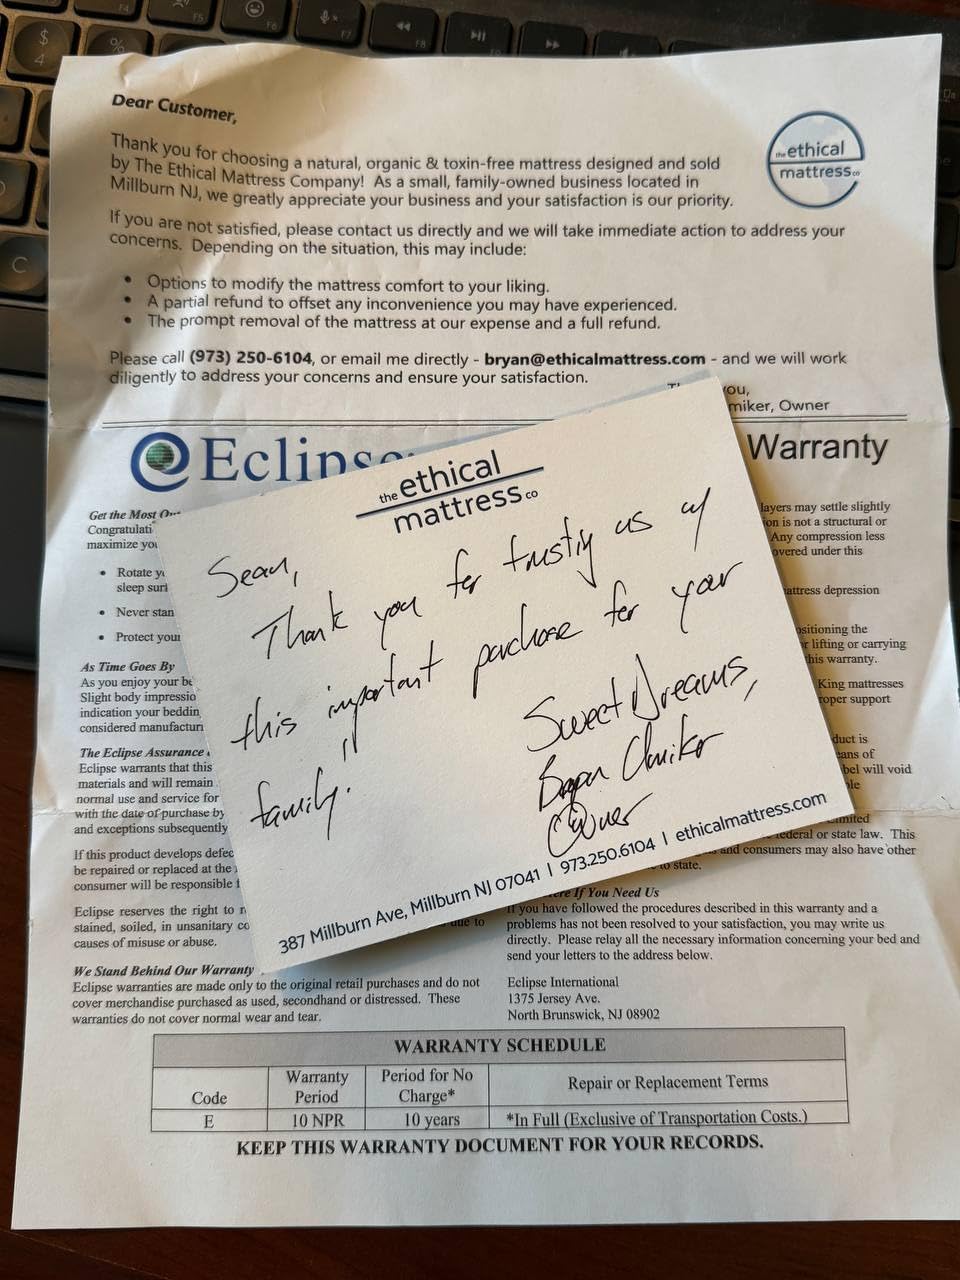 Dear Customer,
Thank you for choosing a natural, organic & toxin-free mattress designed and sold
by The Ethical Mattress Company! As a small, family-owned business located in
Millburn NJ, we greatly appreciate your business and your satisfaction is our priority.
the ethical
mattress co
If you are not satisfied, please contact us directly and we will take immediate action to address your
concerns. Depending on the situation, this may include:
• Options to modify the mattress comfort to your liking.
• A partial refund to offset any inconvenience you may have experienced.
• The prompt removal of the mattress at our expense and a full refund.
Please call (973) 250-6104, or email me directly - bryan@ethicalmattress.com - and we will work
diligently to address your concerns and ensure your satisfaction.
miker, Owner
Eclipse
Warranty
the ethical
mattress co
Sean,
Thank you for trusting us w/
this important purchase for your
family!
Sweet Dreams,
Bryan
Owner
387 Millburn Ave, Millburn NJ 07041 | 973.250.6104 | ethicalmattress.com
Get the Most
Congratulati
maximize
• Rotate
sleep
• Never
• Protect
As Time Goes By
As you enjoy your
Slight body impressio
indication your
considered manufacturi
The Eclipse Assurance
Eclipse warrants that this
materials and will remain
normal use and service for
with the date of purchase by
and exceptions subsequently
If this product develops
be repaired or replaced at the
consumer will be responsible
Eclipse reserves the right to
stained, soiled, in unsanitary
due to
causes of misuse or abuse.
We Stand Behind Our Warranty
Eclipse warranties are made only to the original retail purchases and do not
cover merchandise purchased as used, secondhand or distressed. These
warranties do not cover normal wear and tear.
layers may settle slightly
is not a structural or
Any compression less
overed under this
attress depression
ositioning the
lifting or carrying
his warranty.
King mattresses
roper support
duct is
eans of
bel will void
federal or state law. This
and consumers may also have other
to state.
If You Need Us
If you have followed the procedures described in this warranty and a
problems has not been resolved to your satisfaction, you may write us
directly. Please relay all the necessary information concerning your bed and
send your letters to the address below.
Eclipse International
1375 Jersey Ave.
North Brunswick, NJ 08902
WARRANTY SCHEDULE
Code Warranty Period Period for No Charge* Repair or Replacement Terms
E 10 NPR 10 years *In Full (Exclusive of Transportation Costs.)
KEEP THIS WARRANTY DOCUMENT FOR YOUR RECORDS.